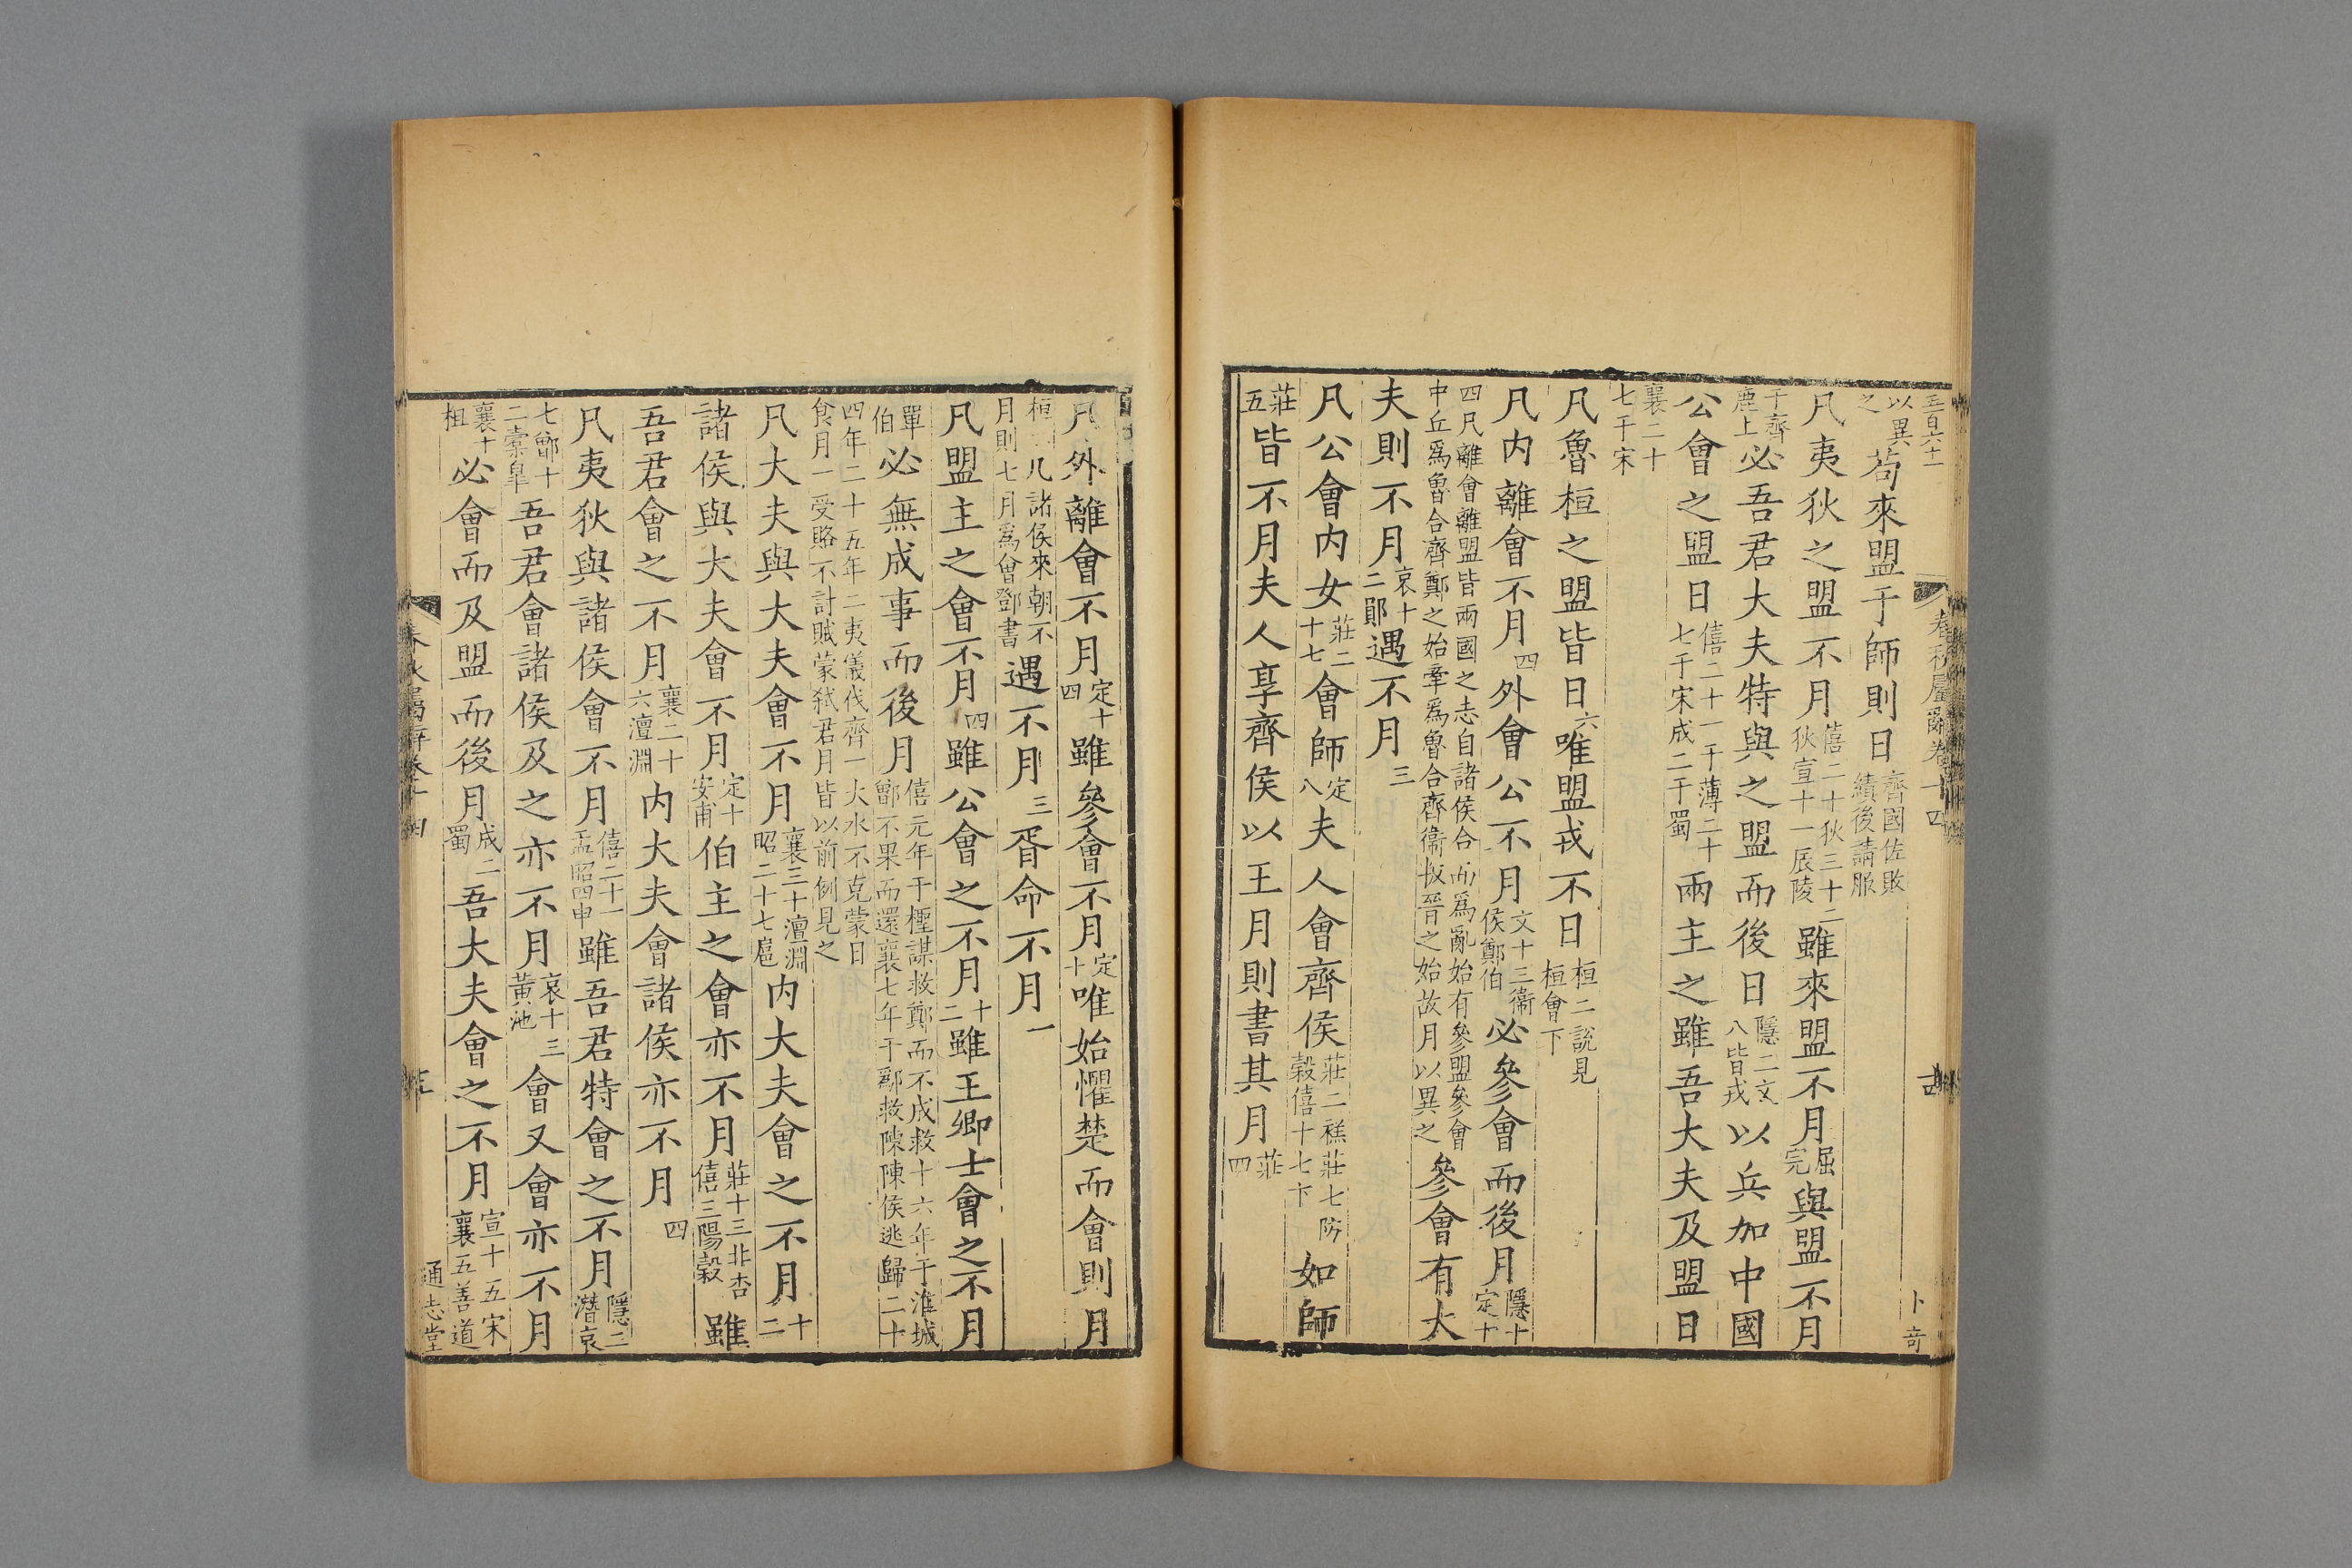 五百六十一
春秋屬辭卷十四
卜竒
以異之苟來盟于師則日齊國佐敗績後請服
凡夷狄之盟不月僖二十狄三十二狄宣十一辰陵雖來盟不月屈完與盟不月
于齊鹿上必吾君大夫特與之盟而後日隱二文八皆戎以兵加中國
公會之盟日僖二十一于薄二十七于宋成二于蜀兩主之雖吾大夫及盟日
襄二十七于宋
凡魯桓之盟皆日六唯盟戎不日桓二説見桓會下
凡内離會不月四外會公不月文十三衞侯鄭伯必參會而後月隱十定十
四凡離會離盟皆兩國之志自諸侯合而爲亂始有參盟參會中丘爲魯合齊鄭之始牽爲魯合齊衞叛晉之始故月以異之參會有大
夫則不月哀十二鄖遇不月三
凡公會内女莊二十七會師定八夫人會齊侯莊二禚莊七防穀僖十七卞如師
莊五皆不月夫人享齊侯以王月則書其月莊四
凡外離會不月定十四雖參會不月定十唯始懼楚而會則月
桓二凡諸侯來朝不月則七月爲會鄧書遇不月三胥命不月一
凡盟主之會不月四雖公會之不月十二雖王卿士會之不月
單伯必無成事而後月僖元年于檉謀救鄭而不成救十六年于淮城鄫不果而還襄七年于鄬救陳陳侯逃歸二十
四年二十五年二夷儀伐齊一大水不克蒙日食月一受賂不討賊蒙弑君月皆以前例見之
凡大夫與大夫會不月襄三十澶淵昭二十七扈内大夫會之不月十二
諸侯與大夫會不月定十安甫伯主之會亦不月莊十三北杏僖三陽穀雖
吾君會之不月襄二十六澶淵内大夫會諸侯亦不月四
凡夷狄與諸侯會不月僖二十一盂昭四申雖吾君特會之不月隱二潛哀
七鄫十二橐臯吾君會諸侯及之亦不月哀十三黃池會又會亦不月
襄十柤必會而及盟而後月成二蜀吾大夫會之不月宣十五宋襄五善道
通志堂